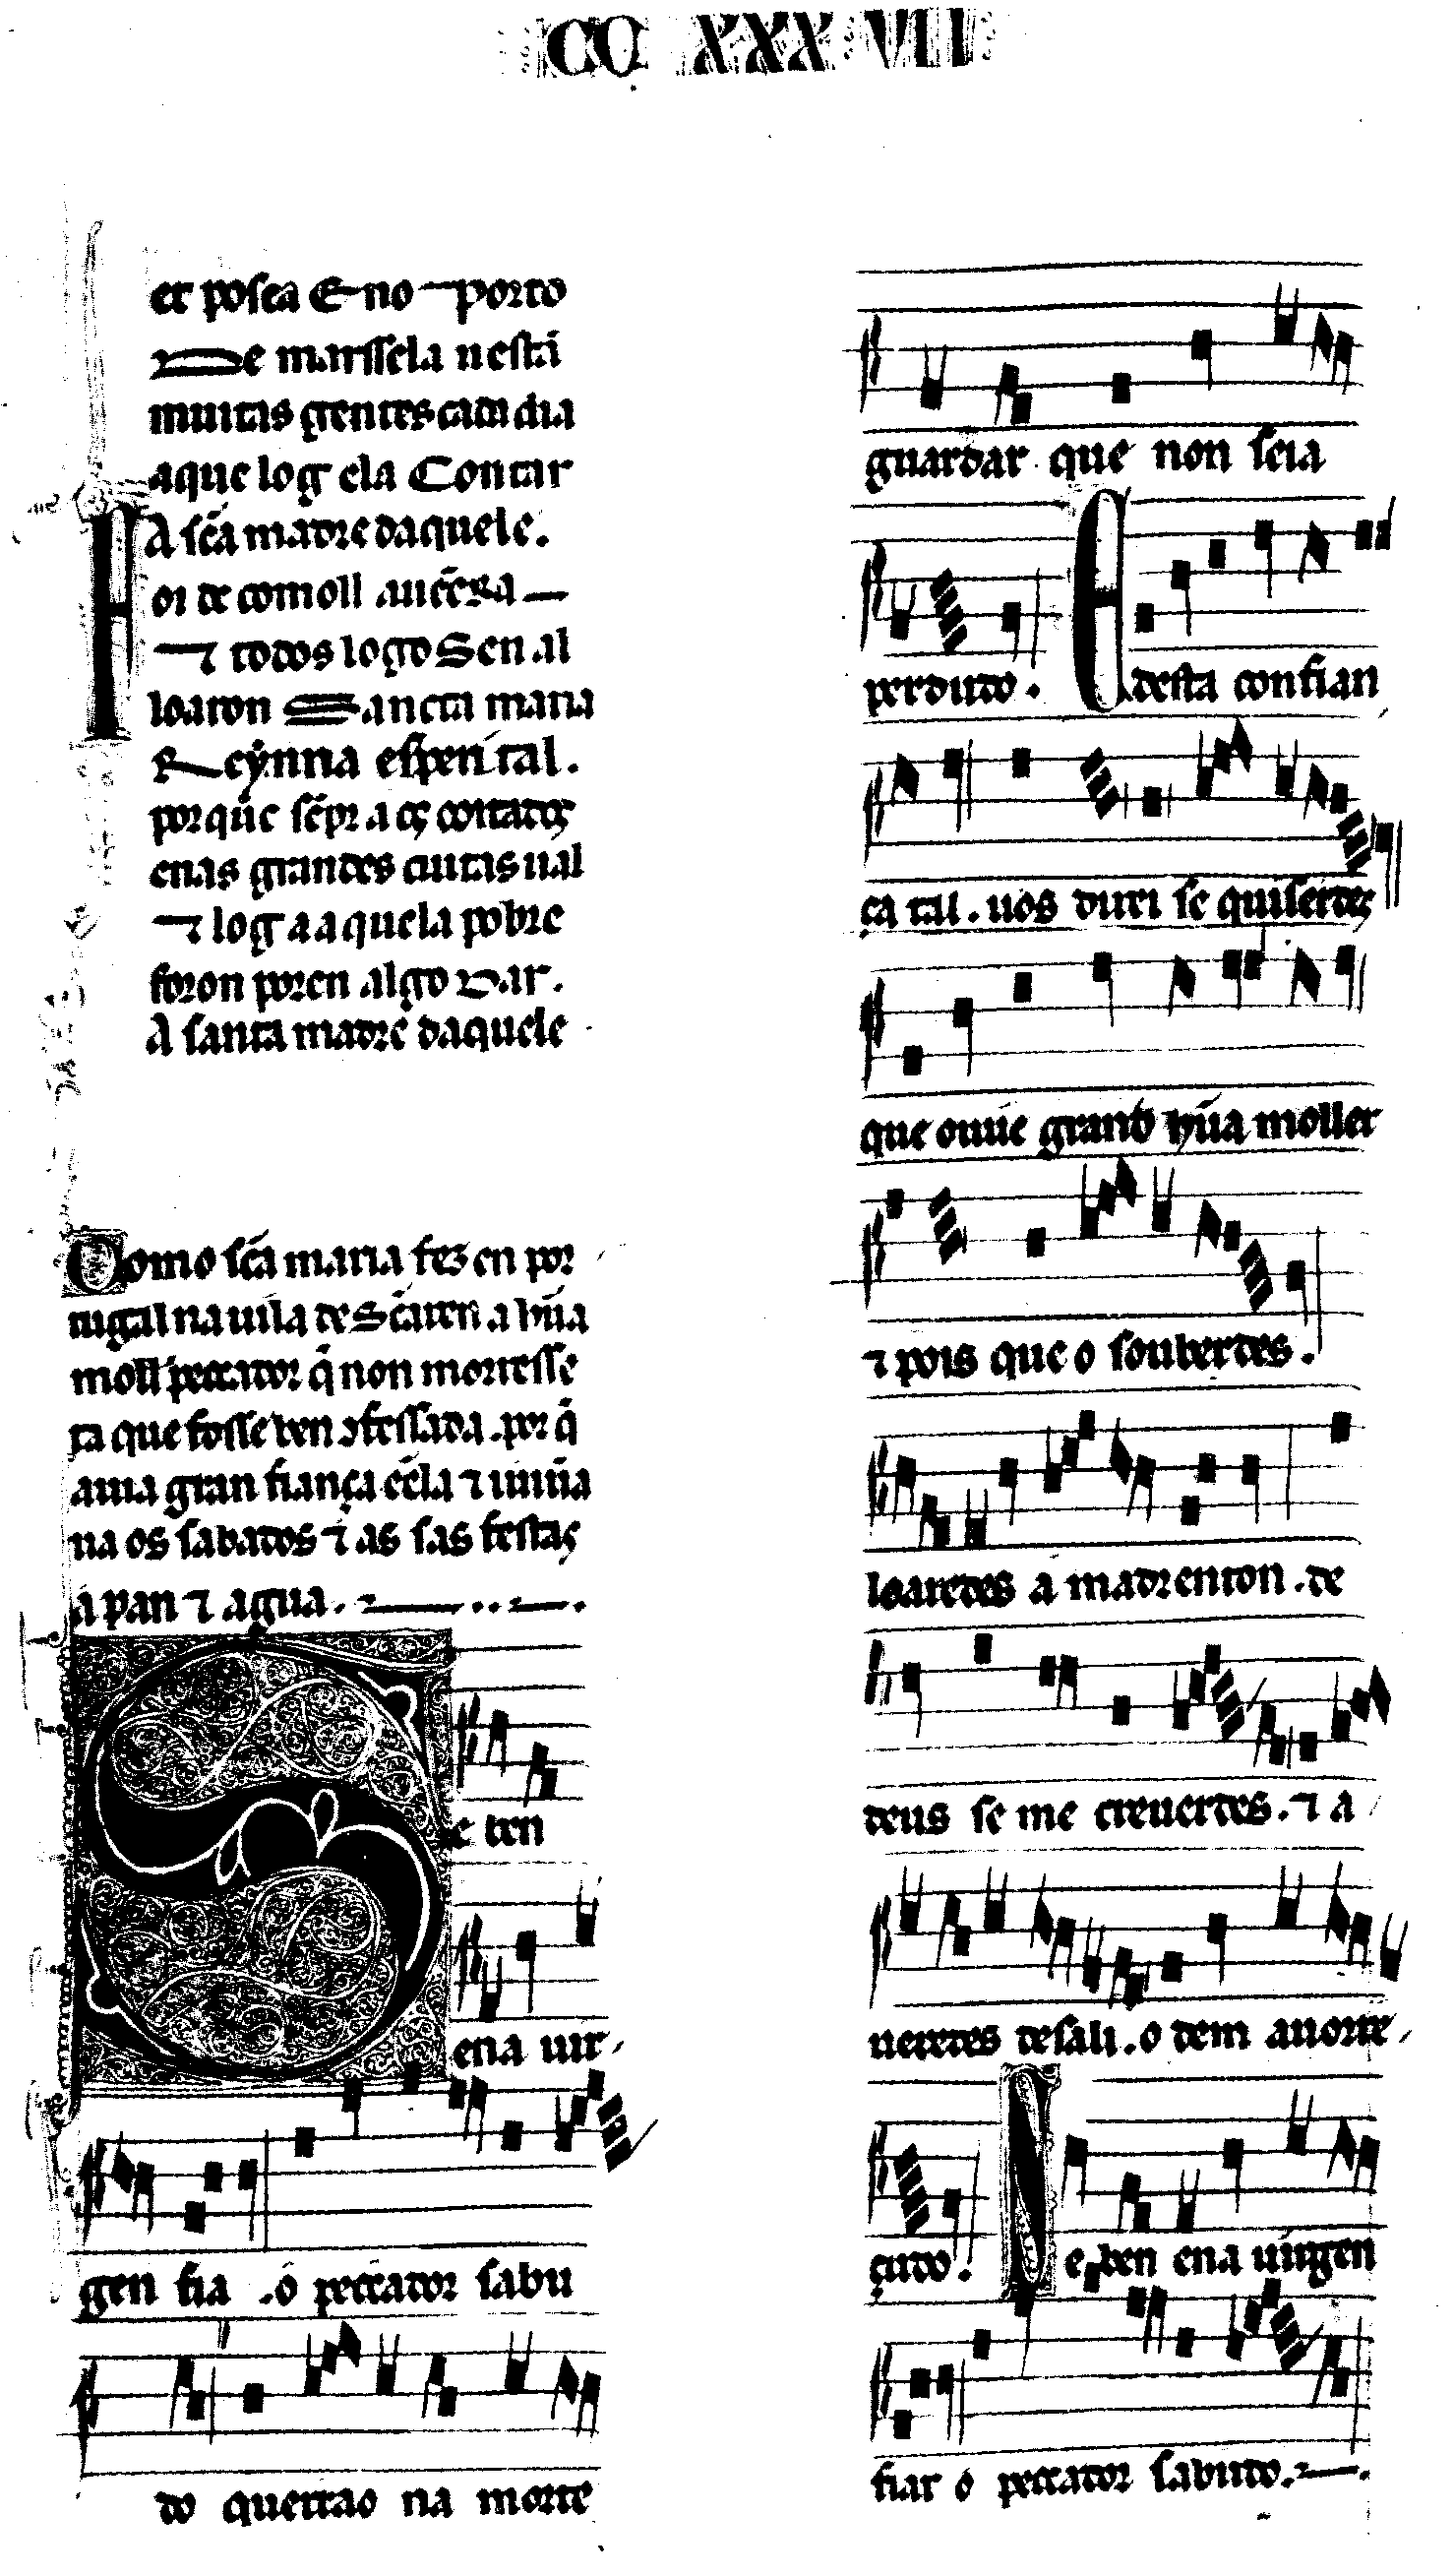 CC XXX VII
er posca E no porto
De marssela u estã
muitas gentes cada dia
aque log ela Contar
A scã madre daquele.
Foi de comoll auẽera
⁊ todos logo Sen al
loaron Sancta maria
Reỹnna esperital.
por que sẽpr aos coitados
enas grandes cuitas ual
⁊ log a aquela pobre
foron poren algo Dar.
A santa madre daquele
Como scã maria fez en por
tugal na uila de Scãren a hũa
moll̃ peccador q̃ non morresse
ta que fosse ben ↄfessada. por q̃
auia gran fiança ẽela ⁊ iaiũa
ua os sabados ⁊ as sas festas
a pan ⁊ agua.
Se ben
ena uir
gen fia .o peccador sabu
do querrao na morte
guardar que non seia
perdudo. E desta confian
ça tal. uos direi se quiserdes
que ouue grand hũa moller
⁊ pois que o souberdes.
loaredes a madr enton .de
deus se me creuerdes. ⁊ a
ueredes desali. o dem auorre
çudo. Se ben ena uirgen
fiar o peccador sabudo.